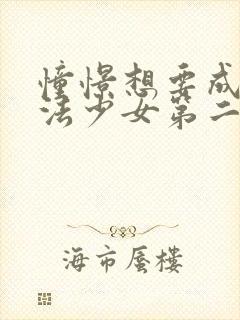 憧憬想要成
法少女第二
海市蜃楼